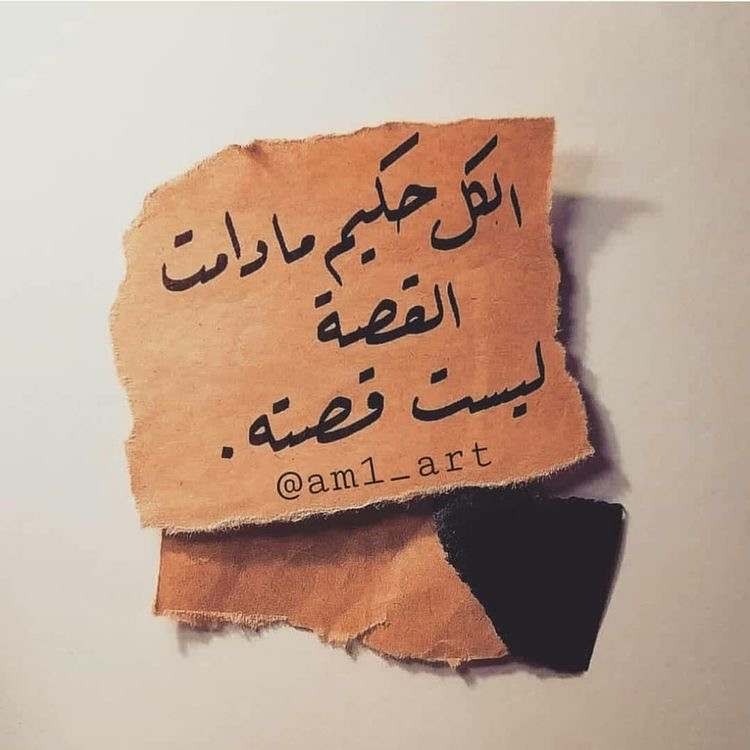 الكل حكيم مادامت
القصة
ليست قصته.
@am1_art